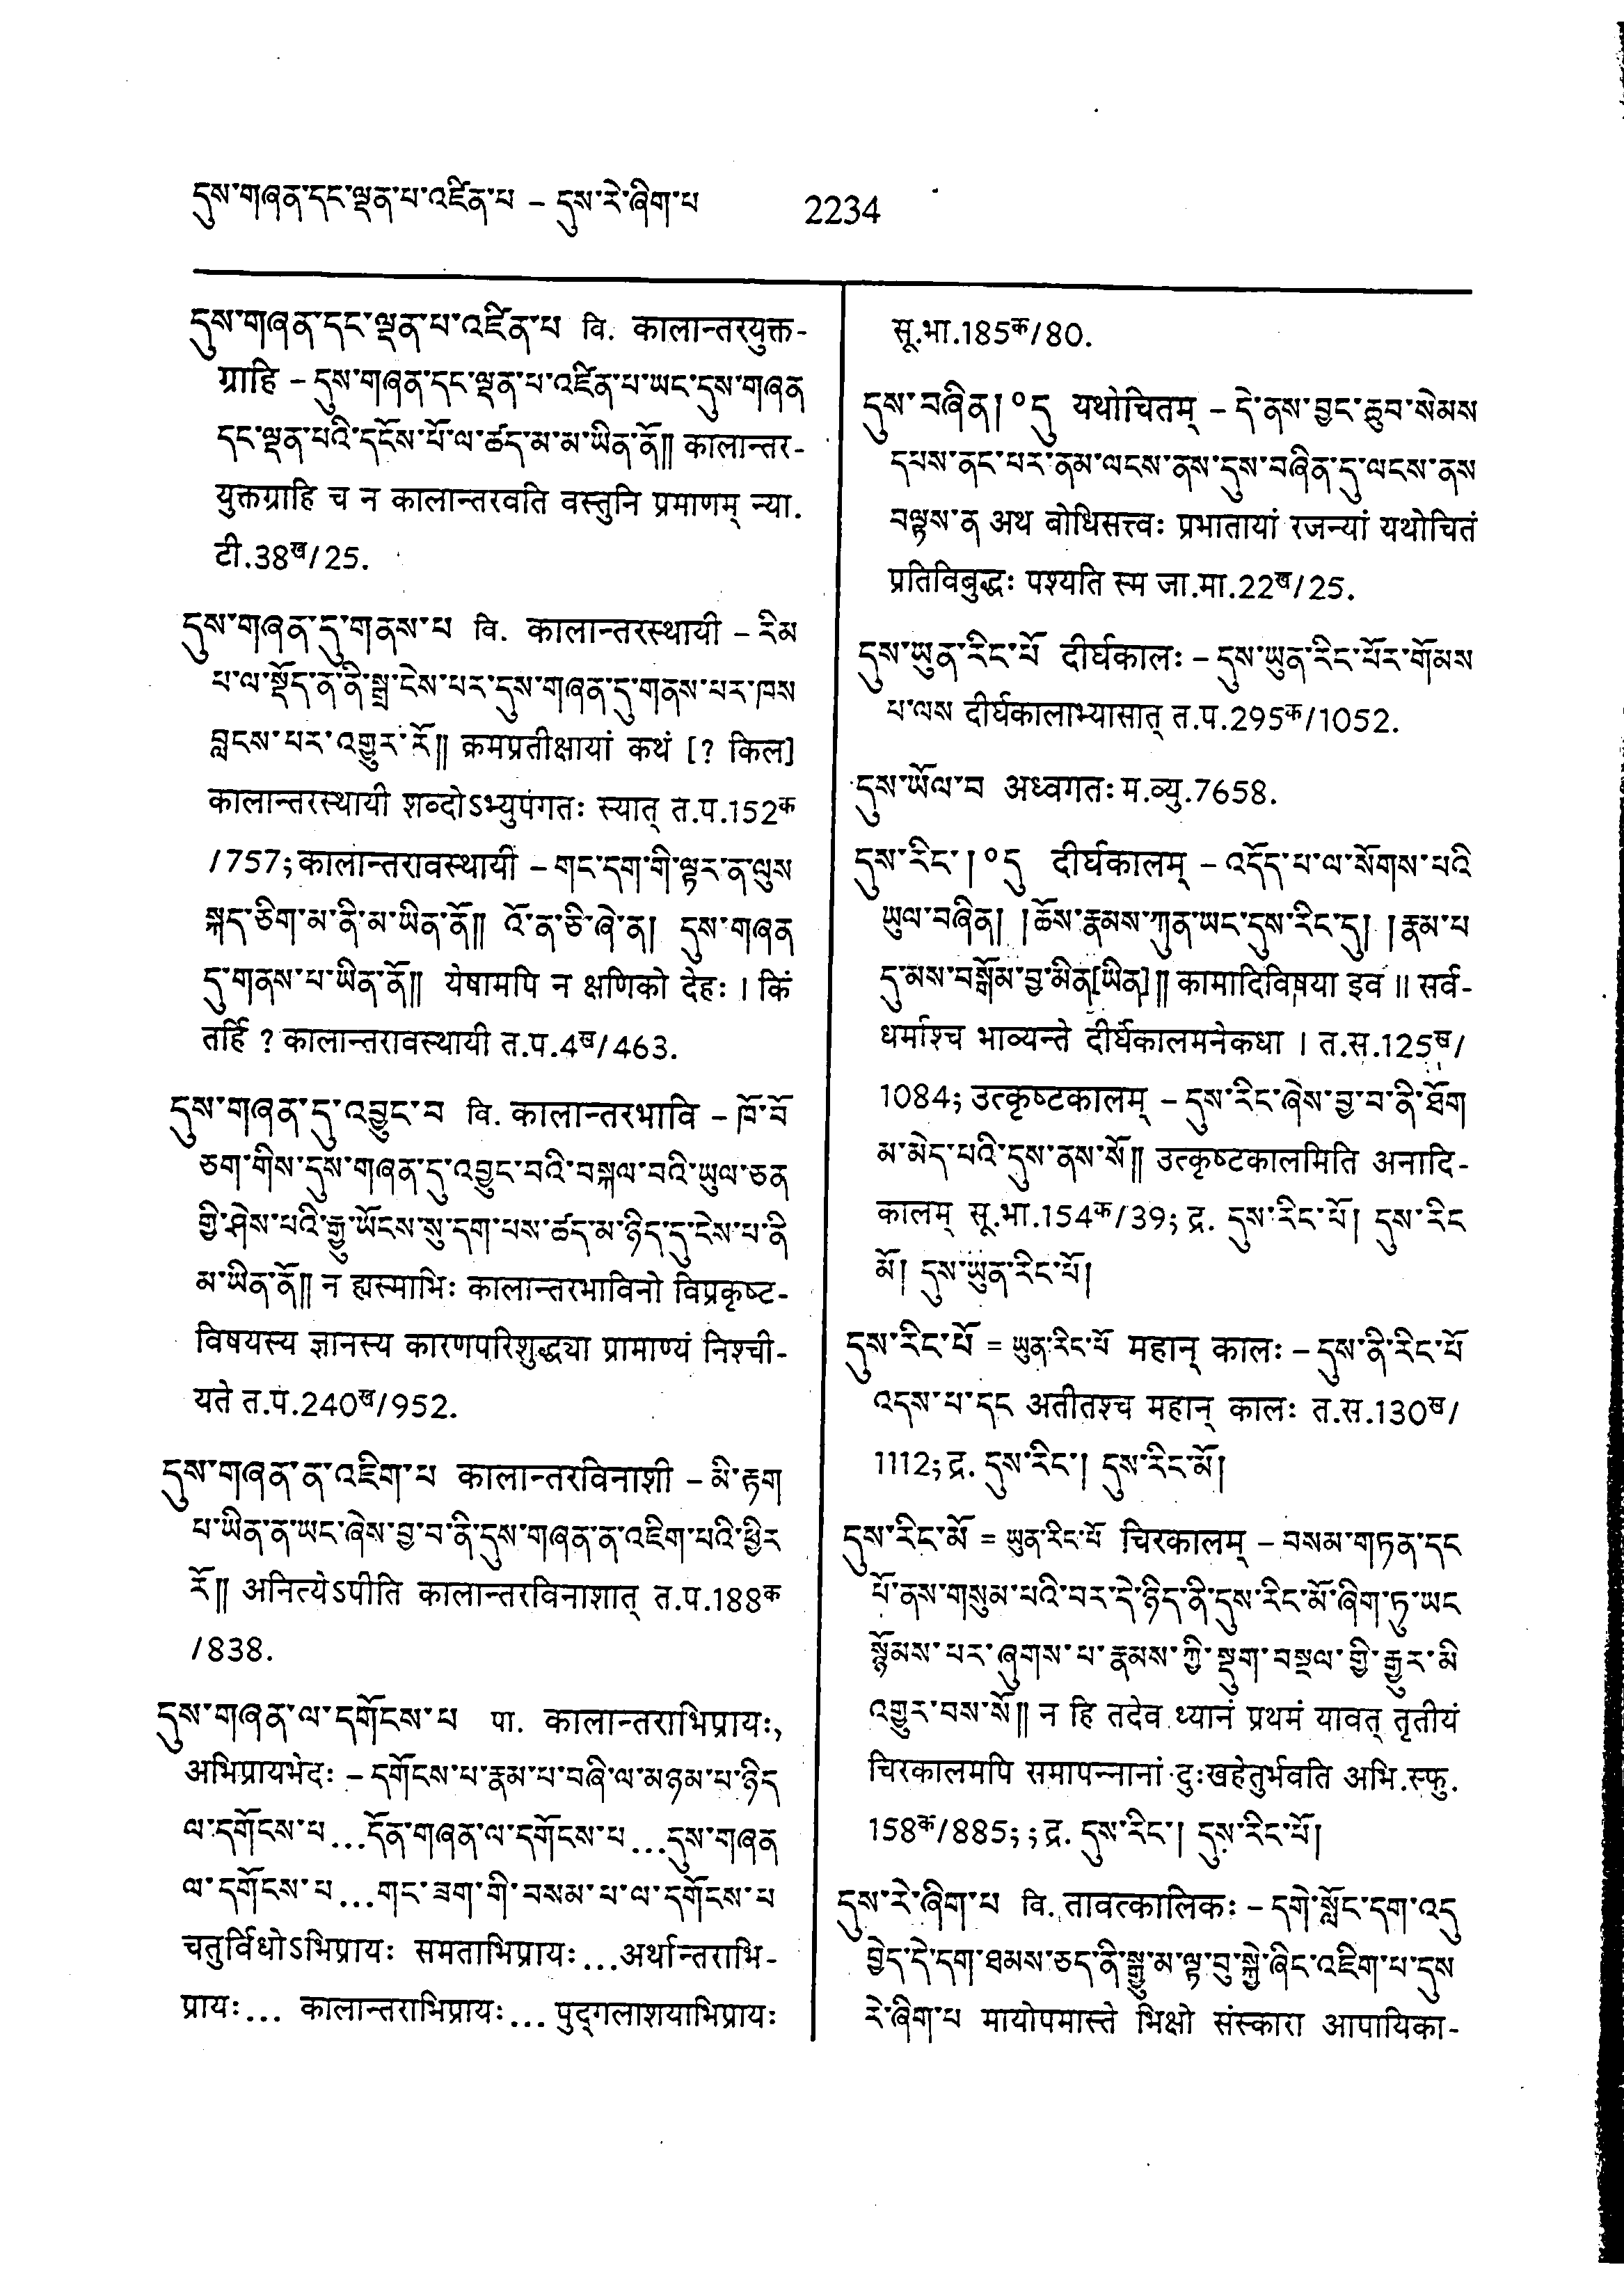 དུས་གཞན་དང་ལྡན་པ་འཛིན་པ – དུས་རེ་ཞིག་པ 2234
དུས་གཞན་དང་ལྡན་པ་འཛིན་པ वि. कालान्तरयुक्त-
ग्राहि – དུས་གཞན་དང་ལྡན་པ་འཛིན་པ་ཡང་དུས་གཞན
དང་ལྡན་པའི་དངོས་པོ་ལ་ཚད་མ་མ་ཡིན་ནོ༎ कालान्तर-
युक्तग्राहि च न कालान्तरवति वस्तुनि प्रमाणम् न्या.
टी.38ख/25.
དུས་གཞན་དུ་གནས་པ वि. कालान्तरस्थायी – རིམ
པ་ལ་སྡོད་ན་ནི་སྒྲ་ངེས་པར་དུས་གཞན་དུ་གནས་པར་ཁས
བླངས་པར་འགྱུར་རོ༎ क्रमप्रतीक्षायां कथं [? किल]
कालान्तरस्थायी शब्दोऽभ्युपगतः स्यात् त.प.152क
/757; कालान्तरावस्थायी – གང་དག་གི་ལྟར་ན་ལུས
སྐད་ཅིག་མ་ནི་མ་ཡིན་ནོ༎ འོ་ན་ཅི་ཞེ་ན། དུས་གཞན
དུ་གནས་པ་ཡིན་ནོ༎ येषामपि न क्षणिको देहः । किं
तर्हि ? कालान्तरावस्थायी त.प.4ख/463.
དུས་གཞན་དུ་འབྱུང་བ वि. कालान्तरभावि – ཁོ་བོ
ཅག་གིས་དུས་གཞན་དུ་འབྱུང་བའི་བསྐལ་བའི་ཡུལ་ཅན
གྱི་ཤེས་པའི་རྒྱུ་ཡོངས་སུ་དག་པས་ཚད་མ་ཉིད་དུ་ངེས་པ་ནི
མ་ཡིན་ནོ༎ न ह्यस्माभिः कालान्तरभाविनो विप्रकृष्ट-
विषयस्य ज्ञानस्य कारणपरिशुद्ध्या प्रामाण्यं निश्ची-
यते त.प.240ख/952.
དུས་གཞན་ན་འཇིག་པ कालान्तरविनाशी – མི་རྟག
པ་ཡིན་ན་ཡང་ཞེས་བྱ་བ་ནི་དུས་གཞན་ན་འཇིག་པའི་ཕྱིར
རོ༎ अनित्येऽपीति कालान्तरविनाशात् त.प.188क
/838.
དུས་གཞན་ལ་དགོངས་པ पा. कालान्तराभिप्रायः,
अभिप्रायभेदः – དགོངས་པ་རྣམ་པ་བཞི་ལ་མཉམ་པ་ཉིད
ལ་དགོངས་པ...དོན་གཞན་ལ་དགོངས་པ...དུས་གཞན
ལ་དགོངས་པ...གང་ཟག་གི་བསམ་པ་ལ་དགོངས་པ
चतुर्विधोऽभिप्रायः समताभिप्रायः...अर्थान्तराभि-
प्रायः... कालान्तराभिप्रायः... पुद्गलाशयाभिप्रायः
सू.भा.185क/80.
དུས་བཞིན། ༠དུ यथोचितम् – དེ་ནས་བྱང་ཆུབ་སེམས
དཔས་ནང་པར་ནམ་ལངས་ནས་དུས་བཞིན་དུ་ལངས་ནས
བལྟས་ན अथ बोधिसत्त्वः प्रभातायां रजन्यां यथोचितं
प्रतिविबुद्धः पश्यति स्म जा.मा.22ख/25.
དུས་ཡུན་རིང་པོ दीर्घकालः – དུས་ཡུན་རིང་པོར་གོམས
པ་ལས दीर्घकालाभ्यासात् त.प.295क/1052.
དུས་ཡོལ་བ अध्वगतः म.व्यु.7658.
དུས་རིང་། ༠དུ दीर्घकालम् – འདོད་པ་ལ་སོགས་པའི
ཡུལ་བཞིན། །ཆོས་རྣམས་ཀུན་ཡང་དུས་རིང་དུ། །རྣམ་པ
དུ་མས་བསྒོམ་བྱ་མིན[ཡིན]༎ कामादिविषया इव ॥ सर्व-
धर्माश्च भाव्यन्ते दीर्घकालमनेकधा । त.स.125ख/
1084; उत्कृष्टकालम् – དུས་རིང་ཞེས་བྱ་བ་ནི་ཐོག
མ་མེད་པའི་དུས་ནས་སོ༎ उत्कृष्टकालमिति अनादि-
कालम् सू.भा.154क/39; द्र. དུས་རིང་པོ། དུས་རིང
མོ། དུས་ཡུན་རིང་པོ།
དུས་རིང་པོ = ཡུན་རིང་པོ महान् कालः – དུས་ནི་རིང་པོ
འདས་པ་དང अतीतश्च महान् कालः त.स.130ख/
1112; द्र. དུས་རིང་། དུས་རིང་མོ།
དུས་རིང་མོ = ཡུན་རིང་པོ चिरकालम् – བསམ་གཏན་དང
པོ་ནས་གསུམ་པའི་བར་དེ་ཉིད་ནི་དུས་རིང་མོ་ཞིག་ཏུ་ཡང
སྙོམས་པར་ཞུགས་པ་རྣམས་ཀྱི་སྡུག་བསྔལ་གྱི་རྒྱུར་མི
འགྱུར་བས་སོ༎ न हि तदेव ध्यानं प्रथमं यावत् तृतीयं
चिरकालमपि समापन्नानां दुःखहेतुर्भवति अभि.स्फु.
158क/885; ; द्र. དུས་རིང་། དུས་རིང་པོ།
དུས་རེ་ཞིག་པ वि. तावत्कालिकः – དགེ་སློང་དག་འདུ
བྱེད་དེ་དག་ཐམས་ཅད་ནི་སྒྱུ་མ་ལྟ་བུ་སྐྱེ་ཞིང་འཇིག་པ་དུས
རེ་ཞིག་པ मायोपमास्ते भिक्षो संस्कारा आपायिका-